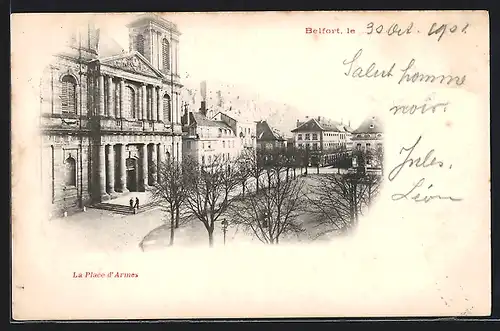 Belfort, le 30 Oct. 1901
Salut homme
noir,
Jules,
Léon
La Place d'Armes